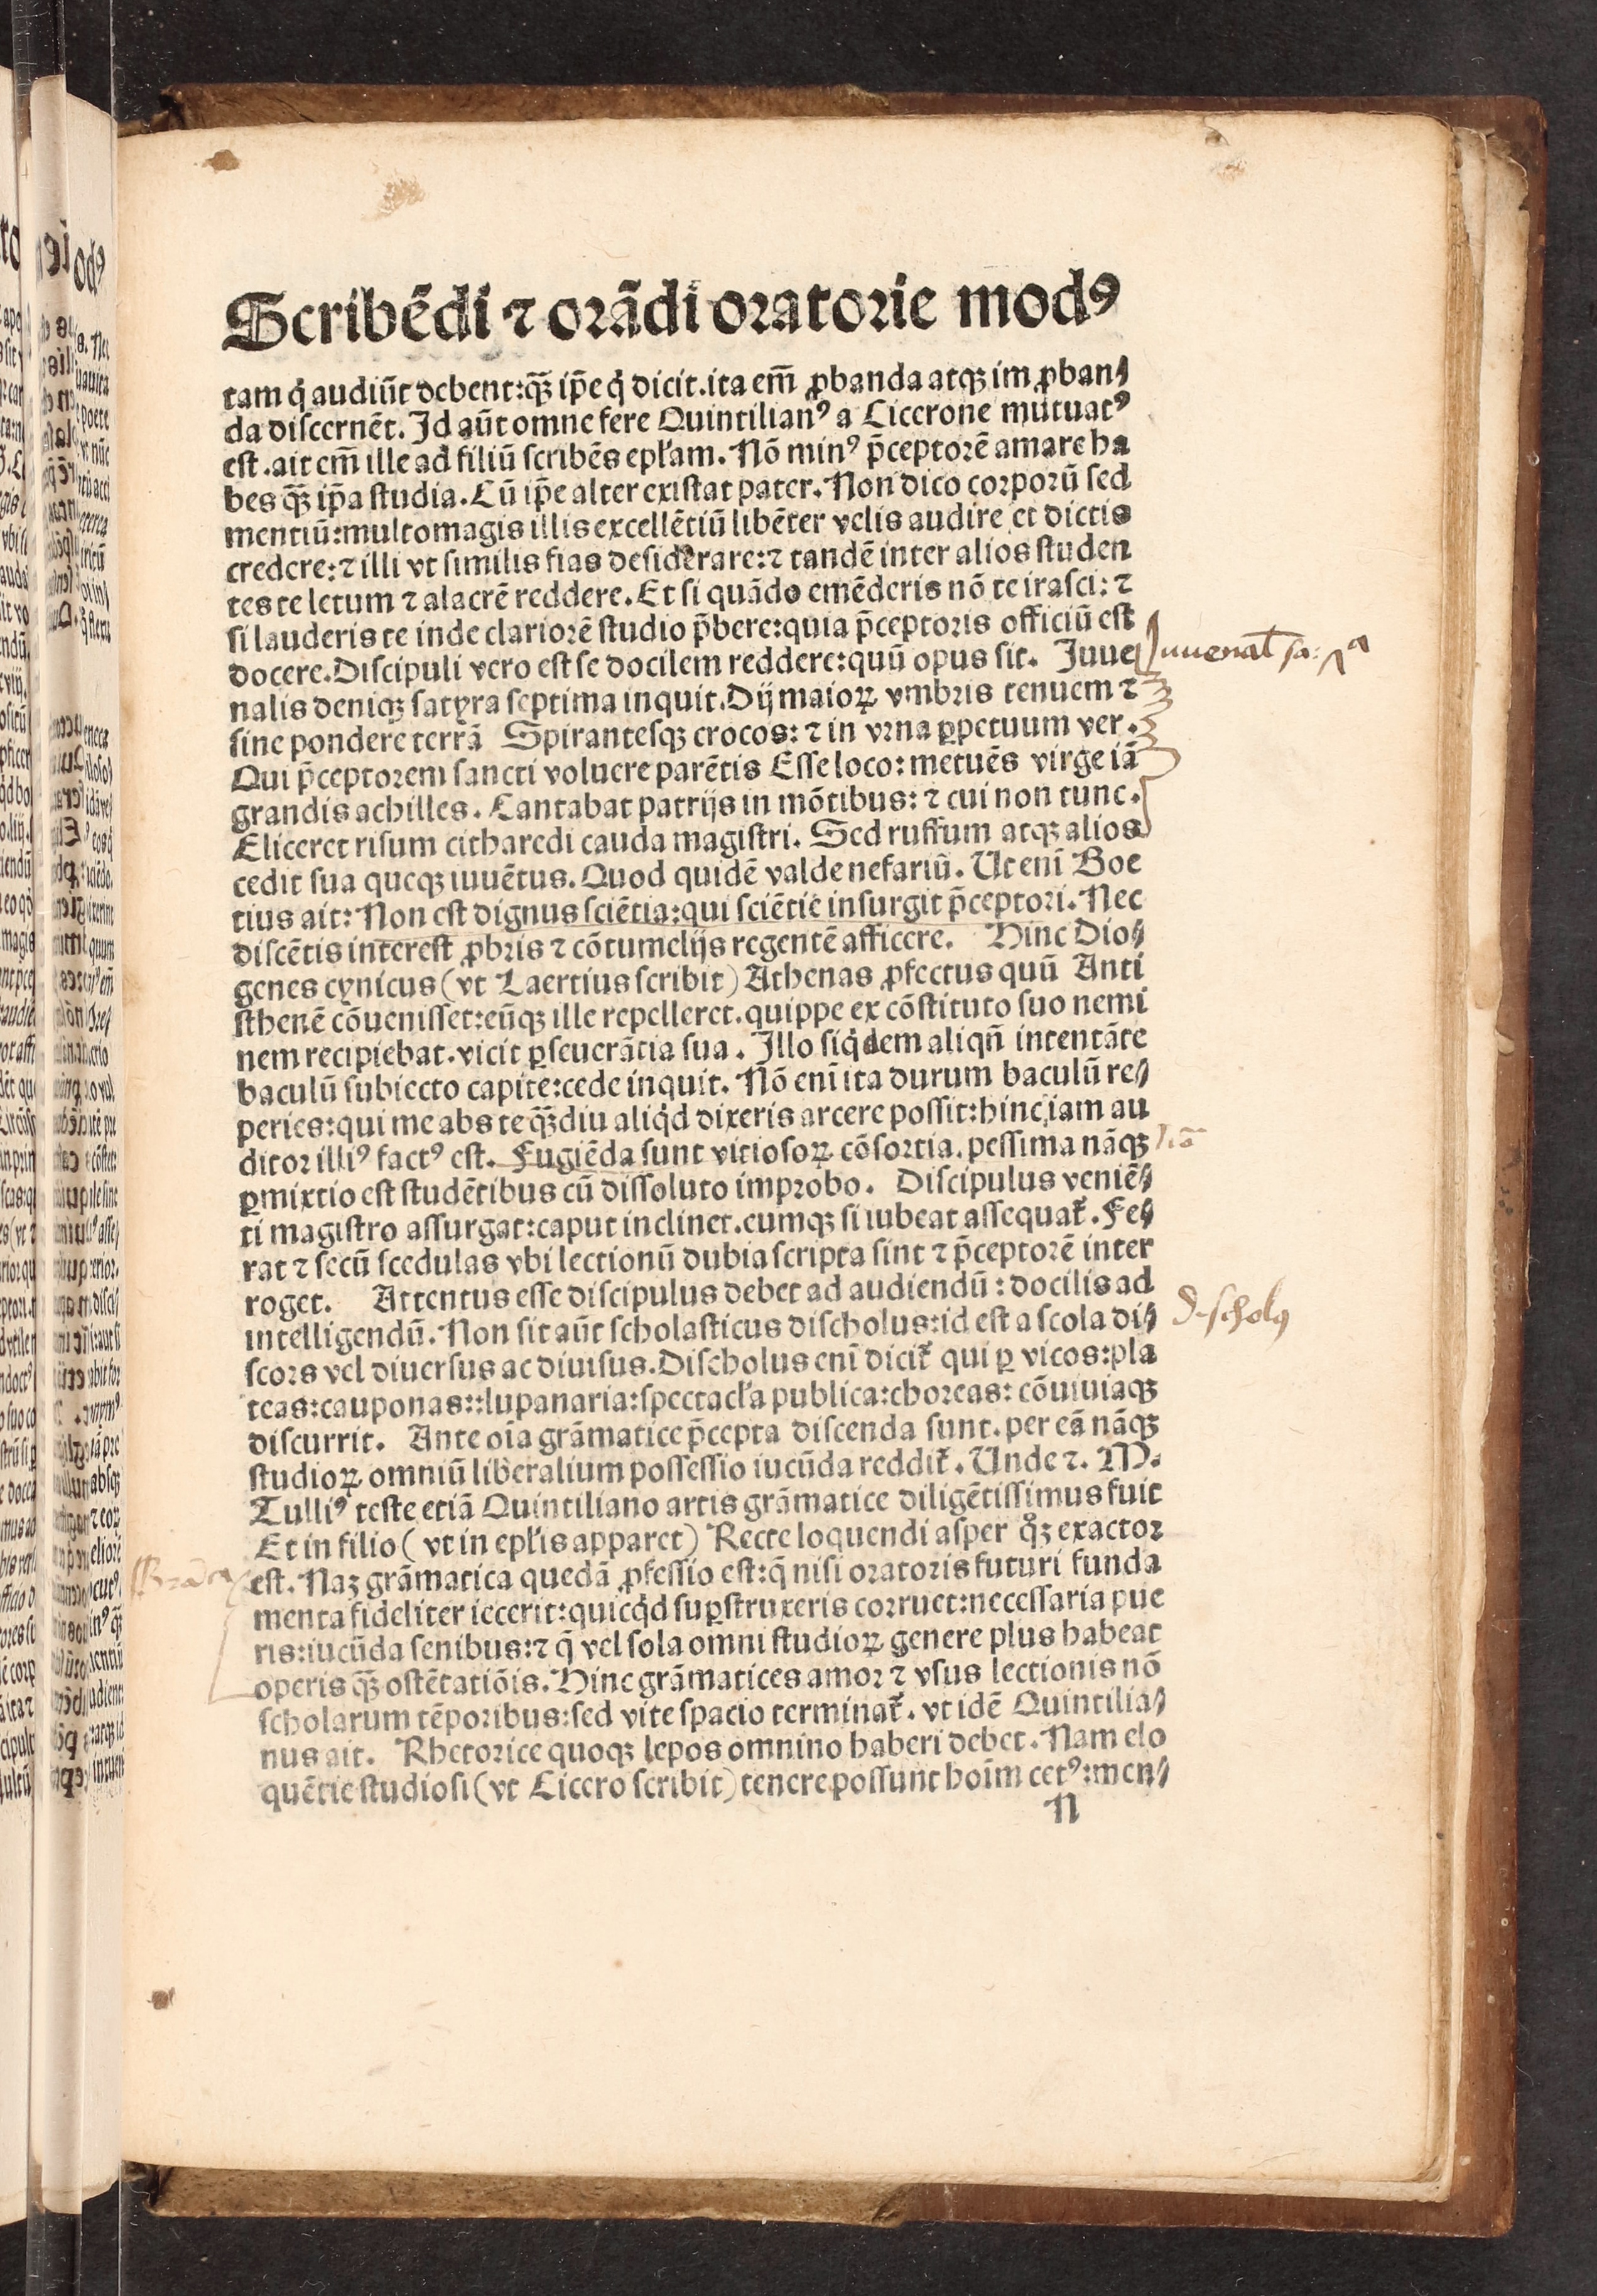 Scribēdi ⁊ orādi oratorie modꝰ
tam q̇ audiūt debent:qꝫ̄ ip̄e q̇ dicit.ita em̄ ꝓbanda atqꝫ im ꝓban⸗
da discernēt. Id aūt omne fere Quintilianꝰ a Cicerone mutuatꝰ
est .ait em̄ ille ad filiū scribēs epl̄am. Nō minꝰ p̄ceptorē amare ha
bes qꝫ̄ ip̄a studia. Cū ip̄e alter existat pater. Non dico corporū sed
mentiū:multomagis illis excellētiū libēter velis audire et dictis
credere:⁊ illi vt similis fias desiderare:⁊ tandē inter alios studen
tes te letum ⁊ alacrē reddere. Et si quādo emēderis nō te irasci: ⁊
si lauderis te inde clariorē studio p̄bere:quia p̄ceptoris officiū est
docere.Discipuli vero est se docilem reddere:quū opus sit. Juue
Juuenal̄ sa: 7a
nalis deniqꝫ satyra septima inquit.Dij maioꝝ vmbris tenuem ⁊
sine pondere terrā Spirantesqꝫ crocos: ⁊ in vrna ꝑpetuum ver .
Qui p̄ceptorem sancti voluere parētis Esse loco: metuēs virge iā
grandis achilles. Cantabat patrijs in mōtibus: ⁊ cui non tunc.
Eliceret risum citharedi cauda magistri. Sed ruffum atqꝫ alios
cedit sua queqꝫ iuuētus. Quod quidē valde nefariū. Ut enī Boe
tius ait: Non est dignus sciētia:qui sciētie insurgit p̄ceptori. Nec
discētis interest ꝓbris ⁊ cōtumelijs regentē afficere. Hinc Dio⸗
genes cynicus (vt Laertius scribit) Athenas ꝓfectus quū Anti
sthenē cōuenisset:eūqꝫ ille repelleret.quippe ex cōstituto suo nemi
nem recipiebat.vicit ꝑseuerātia sua . Illo siq̇dem aliqn̄ intentāte
baculū subiecto capite:cede inquit. Nō enī ita durum baculū re⸗
peries:qui me abs te qꝫ̄diu aliq̇d dixeris arcere possit:hinc iam au
ditor illiꝰ factꝰ est. Fugiēda sunt vitiosoꝝ cōsortia. pessima nāqꝫ
ꝑmixtio est studētibus cū dissoluto improbo. Discipulus veniē⸗
ti magistro assurgat:caput inclinet.eumqꝫ si iubeat assequat᷑. Fe⸗
rat ⁊ secū scedulas vbi lectionū dubia scripta sint ⁊ p̄ceptorē inter
roget. Attentus esse discipulus debet ad audiendū : docilis ad
intelligendū. Non sit aūt scholasticus discholus:id est a scola di⸗
scors vel diuersus ac diuisus.Discholus enī dicit᷑ qui ꝑ vicos:pla
teas:cauponas::lupanaria:spectacl̄a publica:choreas: cōuiuiaqꝫ
discurrit. Ante oīa grāmatice p̄cepta discenda sunt. per eā nāqꝫ
studioꝝ omniū liberalium possessio iucūda reddit᷑ . Unde ⁊. M.
Tulliꝰ teste etiā Quintiliano artis grāmatice diligētissimus fuit
Et in filio ( vt in epl̄is apparet) Recte loquendi asper qͦꝫ exactor
est. Naꝫ grāmatica quedā ꝓfessio est:q̄ nisi oratoris futuri funda
menta fideliter iecerit:quicq̇d suꝑstruxeris corruet:necessaria pue
ris:iucūda senibus:⁊ q̄ vel sola omni studioꝝ genere plus habeat
operis qꝫ̄ ostētatiōis. Hinc grāmatices amor ⁊ vsus lectionis nō
scholarum tēporibus:sed vite spacio terminat᷑. vt idē Quintilia⸗
nus ait. Rhetorice quoqꝫ lepos omnino haberi debet. Nam elo
quētie studiosi (vt Cicero scribit) tenere possunt hoīm cetꝰ:men⸗
N